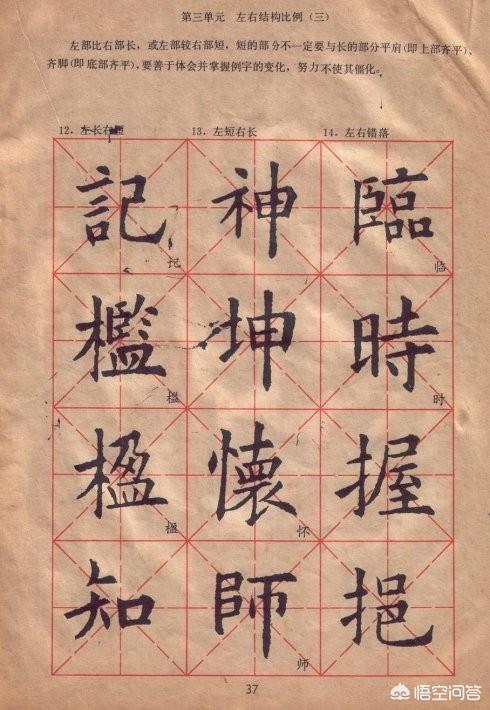 第三单元 左右结构比例(三)
左部比右部长,或左部较右部短,短的部分不一定要与长的部分平肩(即上部齐平)、
齐脚(即底部齐平),要善于体会并掌握例字的变化,努力不使其僵化。
12.左长右短 13.左短右长 14.左右错落
記 神 臨
记 临
檻 坤 時
槛 时
楹 懷 握
楹 怀
知 師 挹
师
37
悟空问答